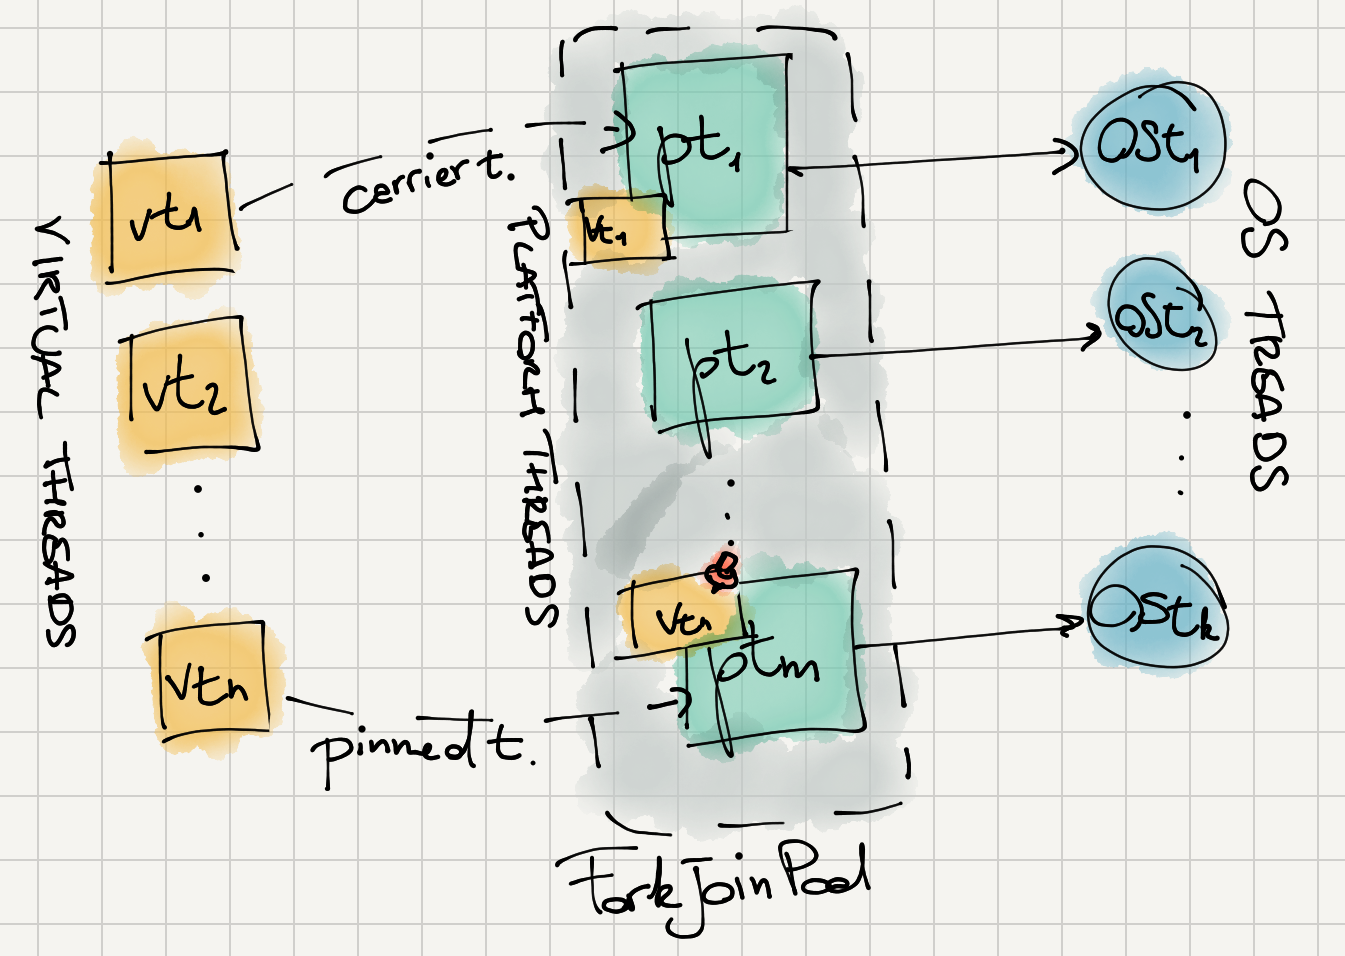 VIRTUAL THREADS
vt1
vt2
vtn
carrier t.
pinned t.
PLATFORM THREADS
pt1
vt1
pt2
vtn
ptm
ForkJoinPool
OSt1
OSt2
OStk
OS TREADS